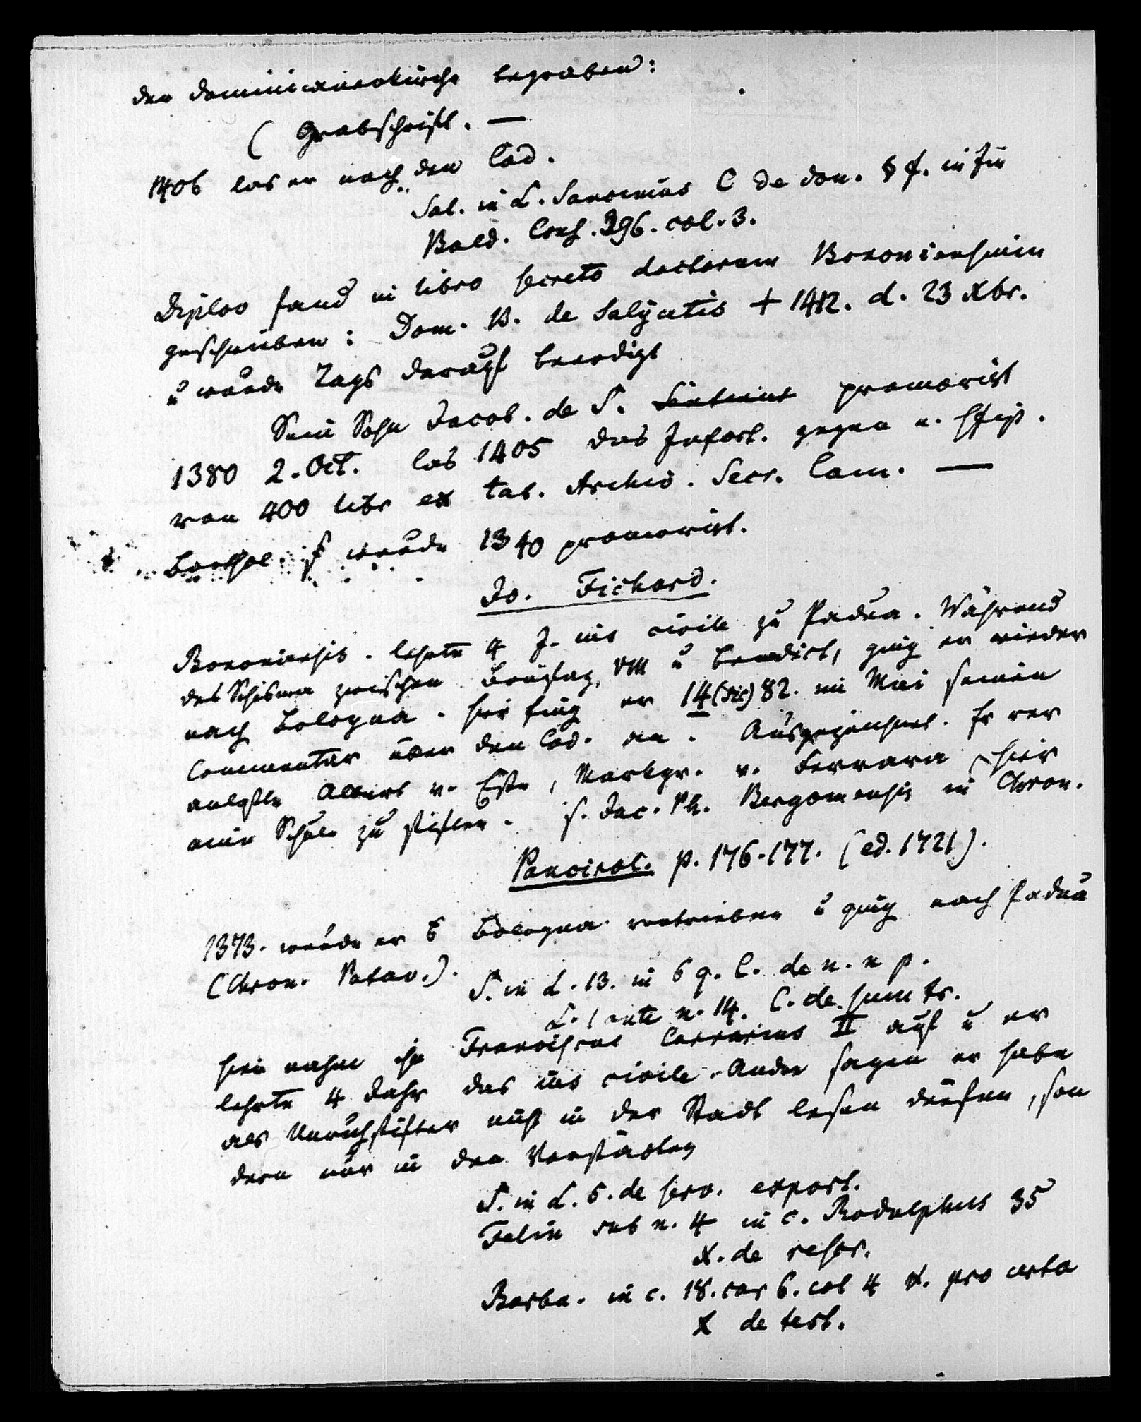 der Dominicanerkirche begraben:
( Grabschrift. —
1406 las er nach den Cod.
Sal. in L. Sancimus C de don. § f. in fin
Bald. Cons. 396. col. 3.
Diplov fand in libro secreto doctorum Bononiensium
geschrieben: Dom. B. de Salycetis + 1412. d. 23 Xbr.
u wurde Tags darauf beerdigt
Sein Sohn Jacob. de S. promovirt
1380 2. Oct. las 1405 das Infort. gegen e.
von 400 libr ex tab. Archiv. Secr. Cam. —
Barthol. S wurde 1340 promovirt.
Jo. Fichard.
Bononiensis. lehrte 4 J. ius civile zu Padua. Während
des Schisma zwischen Bonifaz VIII u Benedict, ging er wieder
nach Bologna. hier fing er 14(sic)82. im Mai seinen
Commentar über den Cod. an. Ausgezeichnet. Er ver
anlaßte Albert v. Este, Markgr. v. Ferrara, hier
eine Schule zu stiften. s. Jac. Ph. Bergomensis in Chron.
Pancirol. p. 176-177. (ed. 1721).
1373. wurde er Bologna vertrieben u ging nach Padua
(Chron. Patav.).
S. in L. 13. in 6 q. C. de n. n p.
L. 1 ante n. 14. C. de sum tr.
hier nahm ihn Franciscus Carrarius II auf u er
lehrte 4 Jahr das ius civile. Andre sagen er habe
als Unruhstifter nicht in der Stadt lesen dürfen, son
dern nur in den Vorstädten
S. in L. 5. de serv. export.
Felin sub n. 4 in c. Rodulphus 35
X. de rescr.
Barba. in c. 18. cor 6. col 4 v. pro certo
X de test.